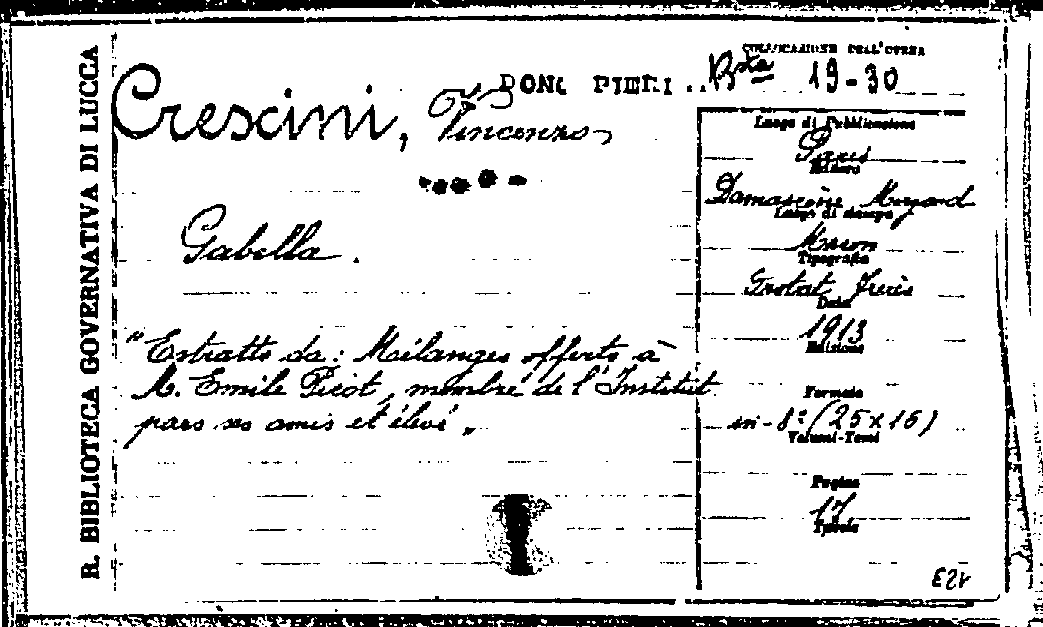 R. BIBLIOTECA GOVERNATIVA DI LUCCA
COLLOCAZIONE DELL'OPERA
DONO PIERI .. B.ta 19-30
Crescini, Vincenzo
Gabella.
"Estratto da: Mélanges offerts à
M. Emile Picot, membre de l'Institut
pars ses amis et élévé„
Luogo di Pubblicazione
Paris
Editore
Damascène Morgand
Luogo di stampa
Macon
Tipografia
Protat Frères
Data
1913
Edizione
Formato
in-8° (25x16)
Volumi-Tomi
Pagine
17
Tavole